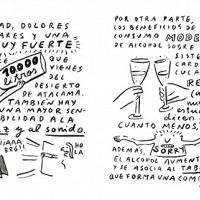 AD, DOLORES
ARES Y UNA
UY FUERTE
10000
litros
QUE
VIENES
DEL
DESIERTO
DE ATACAMA.
TAMBIÉN HAY
UNA MAYOR
SENSIBILIDAD A LA
Z y al sonido.
HO
LA
POR OTRA PARTE,
LOS BENEFICIOS DE
CONSUMO MODE
DE ALCOHOL SOBRE
SISTE
CARD
CULA
RE
estu
dicen
CUANTO MENOS,
ADEMÁS,
SORRY
EL ALCOHOL AUMENT
Y SE ASOCIA AL TAB
QUE FORMA UNA COM